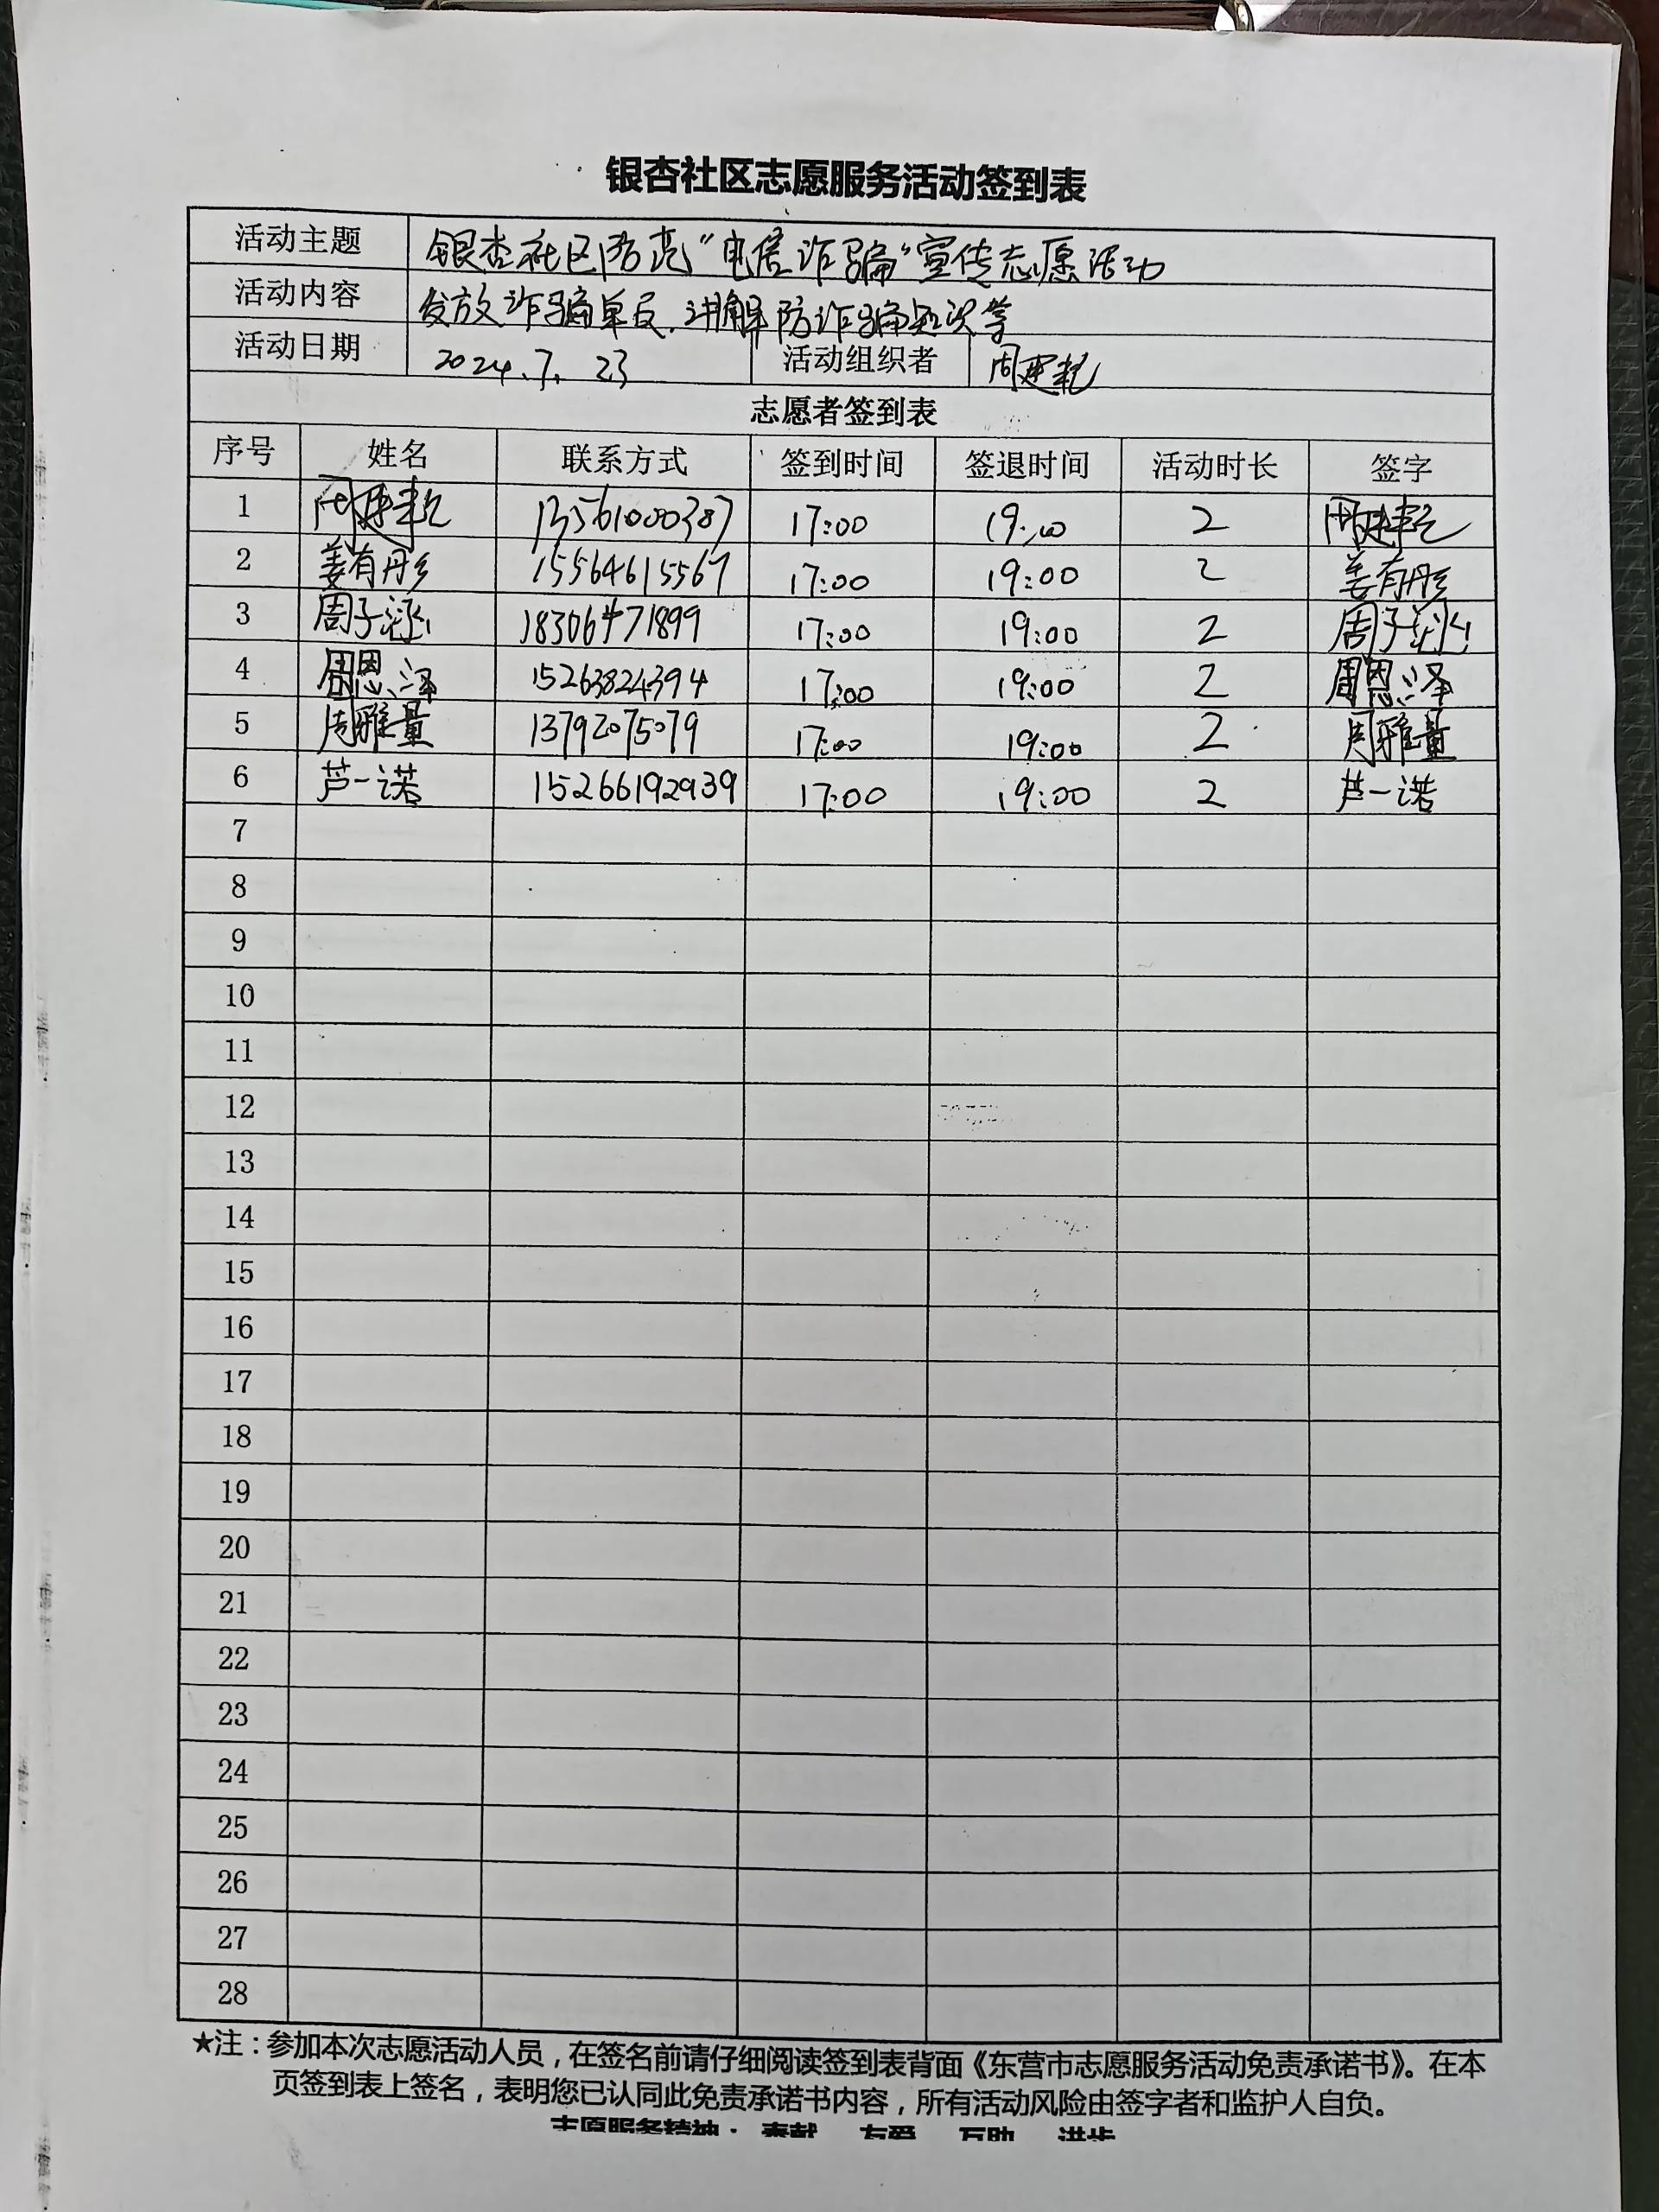 银杏社区志愿服务活动签到表
活动主题 银杏社区防范"电信诈骗"宣传志愿活动
活动内容 发放诈骗单反、讲解防诈骗知识等
活动日期 2024.7.23 活动组织者 周建乾
志愿者签到表
序号 姓名 联系方式 签到时间 签退时间 活动时长 签字
1 周建乾 13561000387 17:00 19:00 2 周建乾
2 姜有彤 15564615567 17:00 19:00 2 姜有彤
3 周子涵 18306471899 17:00 19:00 2 周子涵
4 周恩泽 15263824394 17:00 19:00 2 周恩泽
5 周雅量 13792075079 17:00 19:00 2 周雅量
6 芦一诺 15266192939 17:00 19:00 2 芦一诺
7
8
9
10
11
12
13
14
15
16
17
18
19
20
21
22
23
24
25
26
27
28
★注：参加本次志愿活动人员，在签名前请仔细阅读签到表背面《东营市志愿服务活动免责承诺书》。在本
页签到表上签名，表明您已认同此免责承诺书内容，所有活动风险由签字者和监护人自负。
志愿服务精神： 奉献 友爱 互助 进步